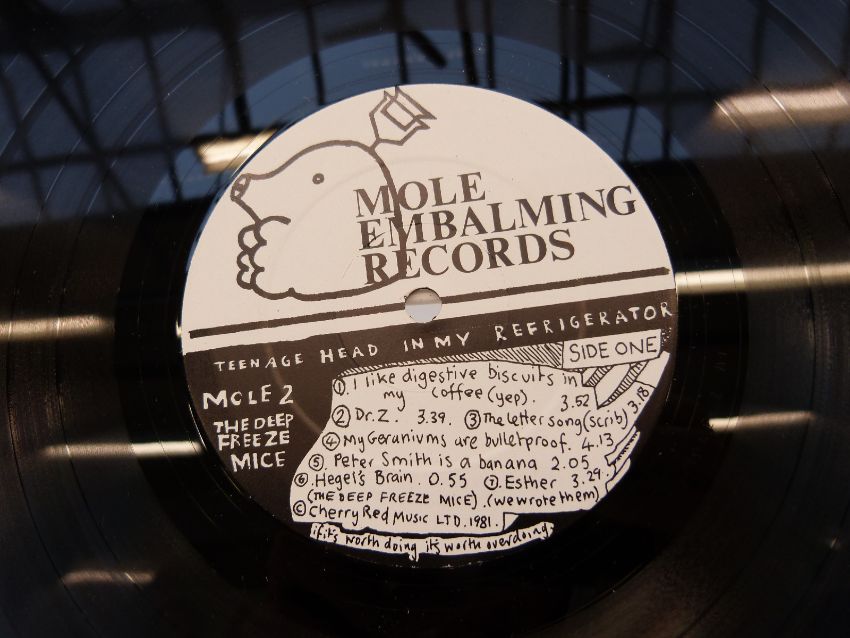 MOLE
EMBALMING
RECORDS
TEENAGE HEAD IN MY REFRIGERATOR
SIDE ONE
MOLE 2
THE DEEP
FREEZE
MICE
①. I like digestive biscuits in
my coffee (yep). 3.52
② Dr. Z. 3.39. ③ The letter song (scrib) 3.18
④ My Geraniums are bulletproof. 4.13
⑤. Peter Smith is a banana 2.05
⑥. Hegel's Brain. 0.55 ⑦. Esther 3.29.
(THE DEEP FREEZE MICE). (we wrote them)
© Cherry Red Music LTD. 1981.
if it's worth doing it's worth overdoing.